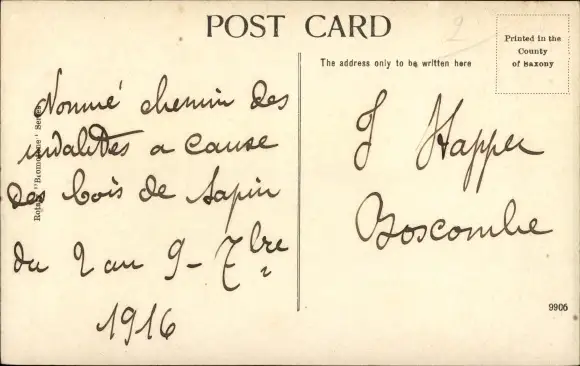 POST CARD
The address only to be written here
Printed in the
County
of Saxony
Nommé chemin des
invalides a cause
des bois de sapin
du 2 au 9 - 7bre
1916
J Happer
Boscombe
9905
2